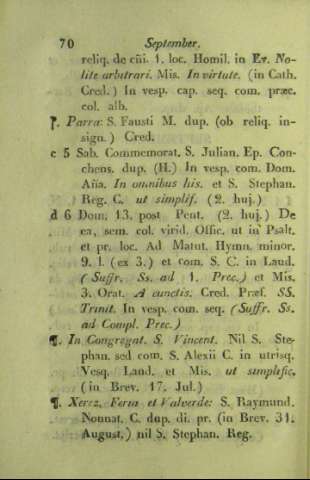 70 September.
reliq. de cñi. 1. loc. Homil. in Ev. No-
lite arbitrari. Mis. In virtute. (in Cath.
Cred.) In vesp. cap. seq. com. præc.
col. alb.
¶. Parra: S. Fausti M. dup. (ob reliq. in-
sign.) Cred.
c 5 Sab. Commemorat. S. Julian. Ep. Con-
chens. dup. (H.) In vesp. com. Dom.
Aña. In omnibus his. et S. Stephan.
Reg. C. ut simplif. (2. huj.)
d 6 Dom. 13. post Pent. (2. huj.) De
ea, sem. col. virid. Offic. ut in Psalt.
et pr. loc. Ad Matut. Hymn. minor.
9. l. (ex 3.) et com. S. C. in Laud.
(Suffr. Ss. ad 1. Prec.) et Mis.
3. Orat. A cunctis. Cred. Præf. SS.
Trinit. In vesp. com. seq. (Suffr. Ss.
ad Compl. Prec.)
¶. In Congregat. S. Vincent. Nil S. Ste-
phan. sed com. S. Alexii C. in utrisq.
Vesq. Laud. et Mis. ut simplific.
(in Brev. 17. Jul.)
¶. Xerez, Feria et Valverde: S. Raymund.
Nonnat. C. dup. di. pr. (in Brev. 31.
August.) nil S. Stephan. Reg.